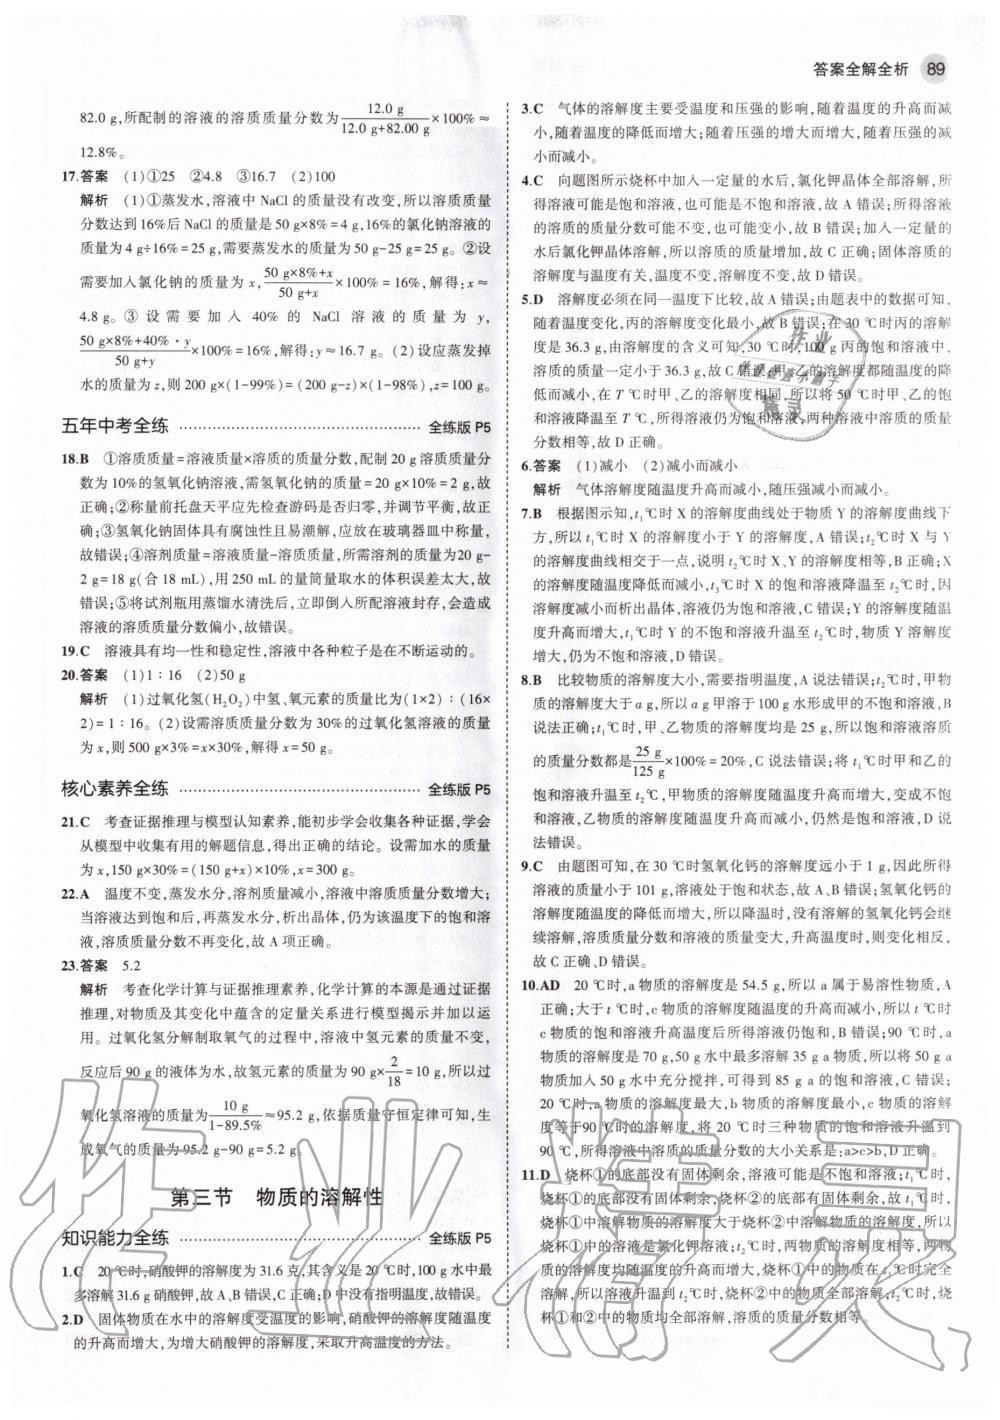 答案全解全析 89
82.0 g,所配制的溶液的溶质质量分数为12.0 g/(12.0 g+82.00 g)×100%≈
12.8%。
17.答案 (1)①25 ②4.8 ③16.7 (2)100
解析 (1)①蒸发水,溶液中 NaCl 的质量没有改变,所以溶质质量
分数达到16%后 NaCl 的质量是 50 g×8%=4 g,16%的氯化钠溶液的
质量为 4 g÷16%=25 g,需要蒸发水的质量为 50 g-25 g=25 g。②设
需要加入氯化钠的质量为 x,(50 g×8%+x)/(50 g+x)×100%=16%,解得:x≈
4.8 g。③设需要加入 40% 的 NaCl 溶液的质量为 y,
(50 g×8%+40%·y)/(50 g+y)×100%=16%,解得:y≈16.7 g。(2)设应蒸发掉
水的质量为 z,则 200 g×(1-99%)=(200 g-z)×(1-98%),z=100 g。
五年中考全练 全练版 P5
18.B ①溶质质量=溶液质量×溶质的质量分数,配制 20 g溶质质量分
数为10%的氢氧化钠溶液,需氢氧化钠的质量=20 g×10%=2 g,故
正确;②称量前托盘天平应先检查游码是否归零,并调节平衡,故正
确;③氢氧化钠固体具有腐蚀性且易潮解,应放在玻璃器皿中称量,
故错误;④溶剂质量=溶液质量-溶质质量,所需溶剂的质量为20 g-
2 g=18 g(合 18 mL),用 250 mL 的量筒量取水的体积误差太大,故
错误;⑤将试剂瓶用蒸馏水清洗后,立即倒入所配溶液封存,会造成
溶液的溶质质量分数偏小,故错误。
19.C 溶液具有均一性和稳定性,溶液中各种粒子是在不断运动的。
20.答案 (1)1∶16 (2)50 g
解析 (1)过氧化氢(H₂O₂)中氢、氧元素的质量比为(1×2)∶(16×
2)=1∶16。(2)设需溶质质量分数为30%的过氧化氢溶液的质量
为 x,则 500 g×3%=x×30%,解得 x=50 g。
核心素养全练 全练版 P5
21.C 考查证据推理与模型认知素养,能初步学会收集各种证据,学会
从模型中收集有用的解题信息,得出正确的结论。设需加水的质量
为 x,150 g×30%=(150 g+x)×10%,x=300 g。
22.A 温度不变,蒸发水分,溶剂质量减小,溶液中溶质质量分数增大;
当溶液达到饱和后,再蒸发水分,析出晶体,仍为该温度下的饱和溶
液,溶质质量分数不再变化,故 A 项正确。
23.答案 5.2
解析 考查化学计算与证据推理素养,化学计算的本源是通过证据
推理,对物质及其变化中蕴含的定量关系进行模型揭示并加以运
用。过氧化氢分解制取氧气的过程中,溶液中氢元素的质量不变,
反应后 90 g 的液体为水,故氢元素的质量为 90 g×2/18=10 g,所以过
氧化氢溶液的质量为10 g/(1-89.5%)≈95.2 g,依据质量守恒定律可知,生
成氧气的质量为 95.2 g-90 g=5.2 g。
第三节 物质的溶解性
知识能力全练 全练版 P5
1.C 20 ℃时,硝酸钾的溶解度为 31.6 克,其含义是 20 ℃时,100 g 水中最
多溶解 31.6 g 硝酸钾,故 A、B 错误,C 正确;D 中没有指明温度,故错误。
2.D 固体物质在水中的溶解度受温度的影响,硝酸钾的溶解度随温度
的升高而增大,为增大硝酸钾的溶解度,采取升高温度的方法。
3.C 气体的溶解度主要受温度和压强的影响,随着温度的升高而减
小,随着温度的降低而增大;随着压强的增大而增大,随着压强的减
小而减小。
4.C 向题图所示烧杯中加入一定量的水后,氯化钾晶体全部溶解,所
得溶液可能是饱和溶液,也可能是不饱和溶液,故 A 错误;所得溶液
的溶质的质量分数可能不变,也可能变小,故 B 错误;加入一定量的
水后氯化钾晶体溶解,所以溶质的质量增加,故 C 正确;固体溶质的
溶解度与温度有关,温度不变,溶解度不变,故 D 错误。
5.D 溶解度必须在同一温度下比较,故 A 错误;由题表中的数据可知,
随着温度变化,丙的溶解度变化最小,故 B 错误;在 30 ℃时丙的溶解
度是 36.3 g,由溶解度的含义可知,30 ℃时,100 g 丙的饱和溶液中,
溶质的质量一定小于 36.3 g,故 C 错误;甲、乙的溶解度都随温度的降
低而减小,在 T ℃时甲、乙的溶解度相同,所以将 50 ℃时甲、乙的饱
和溶液降温至 T ℃,所得溶液仍为饱和溶液,两种溶液中溶质的质量
分数相等,故 D 正确。
6.答案 (1)减小 (2)减小而减小
解析 气体溶解度随温度升高而减小,随压强减小而减小。
7.B 根据图示知,t₁℃时 X 的溶解度曲线处于物质 Y 的溶解度曲线下
方,所以 t₁℃时 X 的溶解度小于 Y 的溶解度,A 错误;t₂℃时 X 与 Y
的溶解度曲线相交于一点,说明 t₂℃时 X、Y 的溶解度相等,B 正确;X
的溶解度随温度降低而减小,t₃℃时 X 的饱和溶液降温至 t₂℃时,因
溶解度减小而析出晶体,溶液仍为饱和溶液,C 错误;Y 的溶解度随温
度升高而增大,t₁℃时 Y 的不饱和溶液升温至 t₂℃时,物质 Y 溶解度
增大,仍为不饱和溶液,D 错误。
8.B 比较物质的溶解度大小,需要指明温度,A 说法错误;t₂℃时,甲物
质的溶解度大于 a g,所以 a g 甲溶于 100 g 水形成甲的不饱和溶液,B
说法正确;t₁℃时,甲、乙物质的溶解度均是 25 g,所以饱和溶液溶质
的质量分数都是25 g/125 g×100%=20%,C 说法错误;将 t₁℃时甲和乙的
饱和溶液升温至 t₂℃,甲物质的溶解度随温度升高而增大,变成不饱
和溶液,乙物质的溶解度随温度升高而减小,仍然是饱和溶液,D 说
法错误。
9.C 由题图可知,在 30 ℃时氢氧化钙的溶解度远小于 1 g,因此所得
溶液的质量小于 101 g,溶液处于饱和状态,故 A、B 错误;氢氧化钙的
溶解度随温度的降低而增大,所以降温时,没有溶解的氢氧化钙会继
续溶解,溶质质量分数和溶液的质量变大,升高温度时,则变化相反,
故 C 正确、D 错误。
10.AD 20 ℃时,a 物质的溶解度是 54.5 g,所以 a 属于易溶性物质,A
正确;大于 t ℃时,c 物质的溶解度随温度的升高而减小,所以 t ℃时
c 物质的饱和溶液升高温度后所得溶液仍饱和,B 错误;90 ℃时,a
物质的溶解度是 70 g,50 g 水中最多溶解 35 g a 物质,所以将 50 g a
物质加入 50 g 水中充分搅拌,可得到 85 g a 的饱和溶液,C 错误;
20 ℃时,a 物质的溶解度最大,b 物质的溶解度最小,c 物质的溶解
度等于90 ℃时的溶解度,将 20 ℃时三种物质的饱和溶液升温到
90 ℃,所得溶液中溶质的质量分数的大小关系是:a>c>b,D 正确。
11.D 烧杯①的底部没有固体剩余,溶液可能是不饱和溶液;t₁℃时,
烧杯①的底部没有固体剩余,烧杯②的底部有固体剩余,故 t₁℃时,
烧杯①中溶解物质的溶解度大于烧杯②中溶解物质的溶解度,所以
烧杯①中的溶液是氯化钾溶液;t₂℃时,两物质的溶解度相等,两物
质的溶解度均随温度的升高而增大,烧杯②中的物质在 t₂℃时完全
溶解,所以溶液升温到 t₃℃时,烧杯②中的物质全部溶解;t₃℃时,烧
杯①和②中的物质均全部溶解,溶质的质量分数相等。
作业精灵